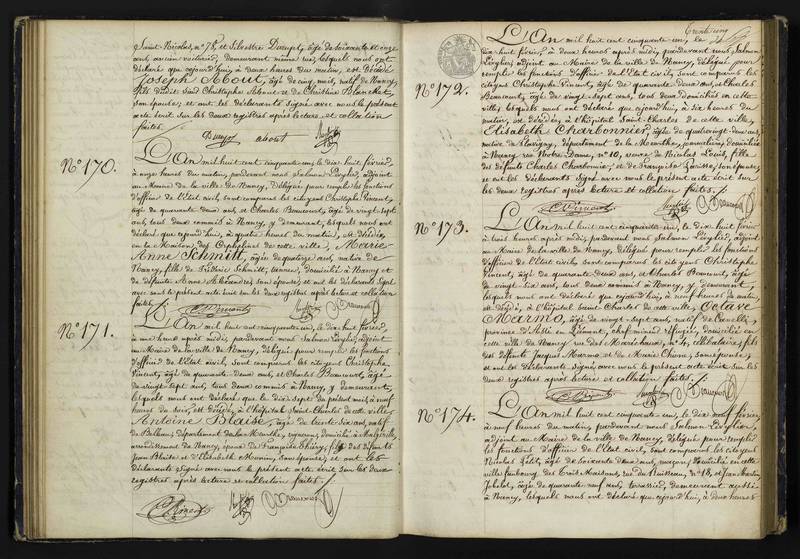 Saint Nicolas, n° 78, et Silvestre Daupt, âgé de soixante et onze
ans, ancien voiturier, demeurant même rue, lesquels nous ont
déclaré que cejourd'hui, à deux heures du matin, est décédé
Joseph About, âgé de cinq mois, natif de Nancy,
fils dudit Saint Christophe About et de Christine Blanchet,
son épouse; et ont les déclarants signé avec nous le présent
acte écrit sur les deux registres après lecture et collation
faites.
about
N° 170.
L'An mil huit cent cinquante-un, le dix huit février,
à onze heures du matin, pardevant nous Salmon Léoglié, adjoint
au Maire de la ville de Nancy, délégué pour remplir les fonctions
d'officier de l'État civil, sont comparus les citoyens Christophe Vincent,
âgé de quarante deux ans, et Charles Beaucourt, âgé de vingt-sept
ans, tous deux commis à Nancy, y demeurant, lesquels nous ont
déclaré que cejourd'hui, à quatre heures du matin, est décédée
en la Maison des Orphelines de cette ville, Marie
Anne Schmitt, âgée de quatorze ans, native de
Nancy, fille de Frédéric Schmitt, domicilié à Nancy et
de défunte Anne son épouse; et ont les déclarants signé
avec nous le présent acte écrit sur les deux registres après lecture et collation
faites.
N° 171.
L'An mil huit cent cinquante-un, le dix huit février,
à une heure après midi, pardevant nous Salmon Léoglié, adjoint
au Maire de la ville de Nancy, délégué pour remplir les fonctions
d'officier de l'État civil, sont comparus les citoyens Christophe
Vincent, âgé de quarante-deux ans, et Charles Beaucourt, âgé
de vingt-sept ans, tous deux commis à Nancy, y demeurant,
lesquels nous ont déclaré que le dix-sept du présent mois, à neuf
heures du soir, est décédé à l'hôpital Saint Charles de cette ville
Antoine Blaise, âgé de trente six ans, natif
de département de la Meurthe, vigneron, domicilié à
arrondissement de Nancy, époux de Françoise Thiéry, fils des défunts
Jean Blaise et d'Elisabeth son épouse; et ont les
déclarants signé avec nous le présent acte écrit sur les deux
registres après lecture et collation faites.
N° 172.
L'An mil huit cent cinquante-un, le
dix-huit février, à deux heures après midi, pardevant nous Salmon
Léoglié, adjoint au Maire de la ville de Nancy, délégué pour
remplir les fonctions d'officier de l'État civil, sont comparus les
citoyens Christophe Vincent, âgé de quarante-deux ans, et Charles
Beaucourt, âgé de vingt-sept ans, tous deux domiciliés en cette
ville, lesquels nous ont déclaré que cejourd'hui, à six heures du
matin, est décédée à l'hôpital Saint-Charles de cette ville,
Elisabeth Charbonnier, âgée de quatre-vingt-deux ans,
native de Flavigny, département de la Meurthe, journalière, domiciliée
à Nancy rue Notre Dame, n° 10, veuve de Nicolas Louis, fille
des défunts Charles Charbonnier, et de Françoise son épouse;
et ont les déclarants signé avec nous le présent acte écrit sur
les deux registres après lecture et collation faites.
N° 173.
L'An mil huit cent cinquante-un, le dix huit février
à trois heures après midi, pardevant nous Salmon Léoglié, adjoint
au Maire de la ville de Nancy, délégué pour remplir les fonctions
d'officier de l'État civil, sont comparus les citoyens Christophe
Vincent, âgé de quarante-deux ans, et Charles Beaucourt, âgé
de vingt-six ans, tous deux commis à Nancy, y demeurant,
lesquels nous ont déclaré que cejourd'hui, à neuf heures du matin,
est décédé, à l'hôpital Saint Charles de cette ville, Octave
Marmo, âgé de vingt-sept ans, natif de
province d'Asti en Piémont, réfugié, domicilié en
cette ville de Nancy rue des Maréchaux, n° 4, célibataire, fils
des défunts Jacques Marmo et de Marie son épouse;
et ont les déclarants signé avec nous le présent acte écrit sur les
deux registres après lecture et collation faites.
N° 174.
L'An mil huit cent cinquante-un, le dix neuf février,
à neuf heures du matin, pardevant nous Salmon Léoglié,
adjoint au Maire de la ville de Nancy, délégué pour remplir
les fonctions d'officier de l'État civil, sont comparus les citoyens
Nicolas âgé de soixante deux ans, maçon, domicilié en cette
ville faubourg des Trois Maisons, rue du Ruisseau, n° 18, et Jean Martin
âgé de quarante neuf ans, terrassier, demeurant aussi
à Nancy, lesquels nous ont déclaré que cejourd'hui, à deux heures